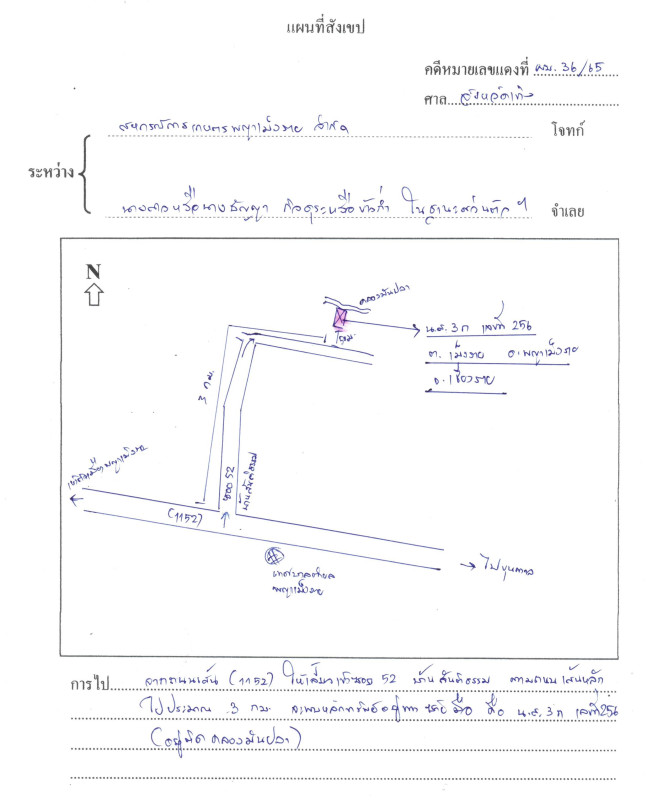 แผนที่สังเขป
คดีหมายเลขแดงที่ ผบ. 36/65
ศาล จังหวัดเทิง
สหกรณ์การเกษตรพญาเม็งราย จำกัด โจทก์
ระหว่าง
นางสาวหรือนางธัญญา หรือ ในฐานะส่วนตัวฯ จำเลย
N
คลองมันปลา
น.ส. 3 ก เลขที่ 256
ต. เม็งราย อ. พญาเม็งราย
จ. เชียงราย
3 กม.
ซอย 52
บ้านสันติธรรม
พญาเม็งราย
(1152)
ไปขุนตาล
เทศบาลตำบล
พญาเม็งราย
การไป จากถนนเส้น (1152) ให้เลี้ยวเข้าซอย 52 บ้านสันติธรรม ตามถนนเส้นหลัก
ไปประมาณ 3 กม. จะพบหลักทรัพย์อยู่ทางซ้ายมือ คือ น.ส. 3 ก เลขที่ 256
(อยู่ติดคลองมันปลา)